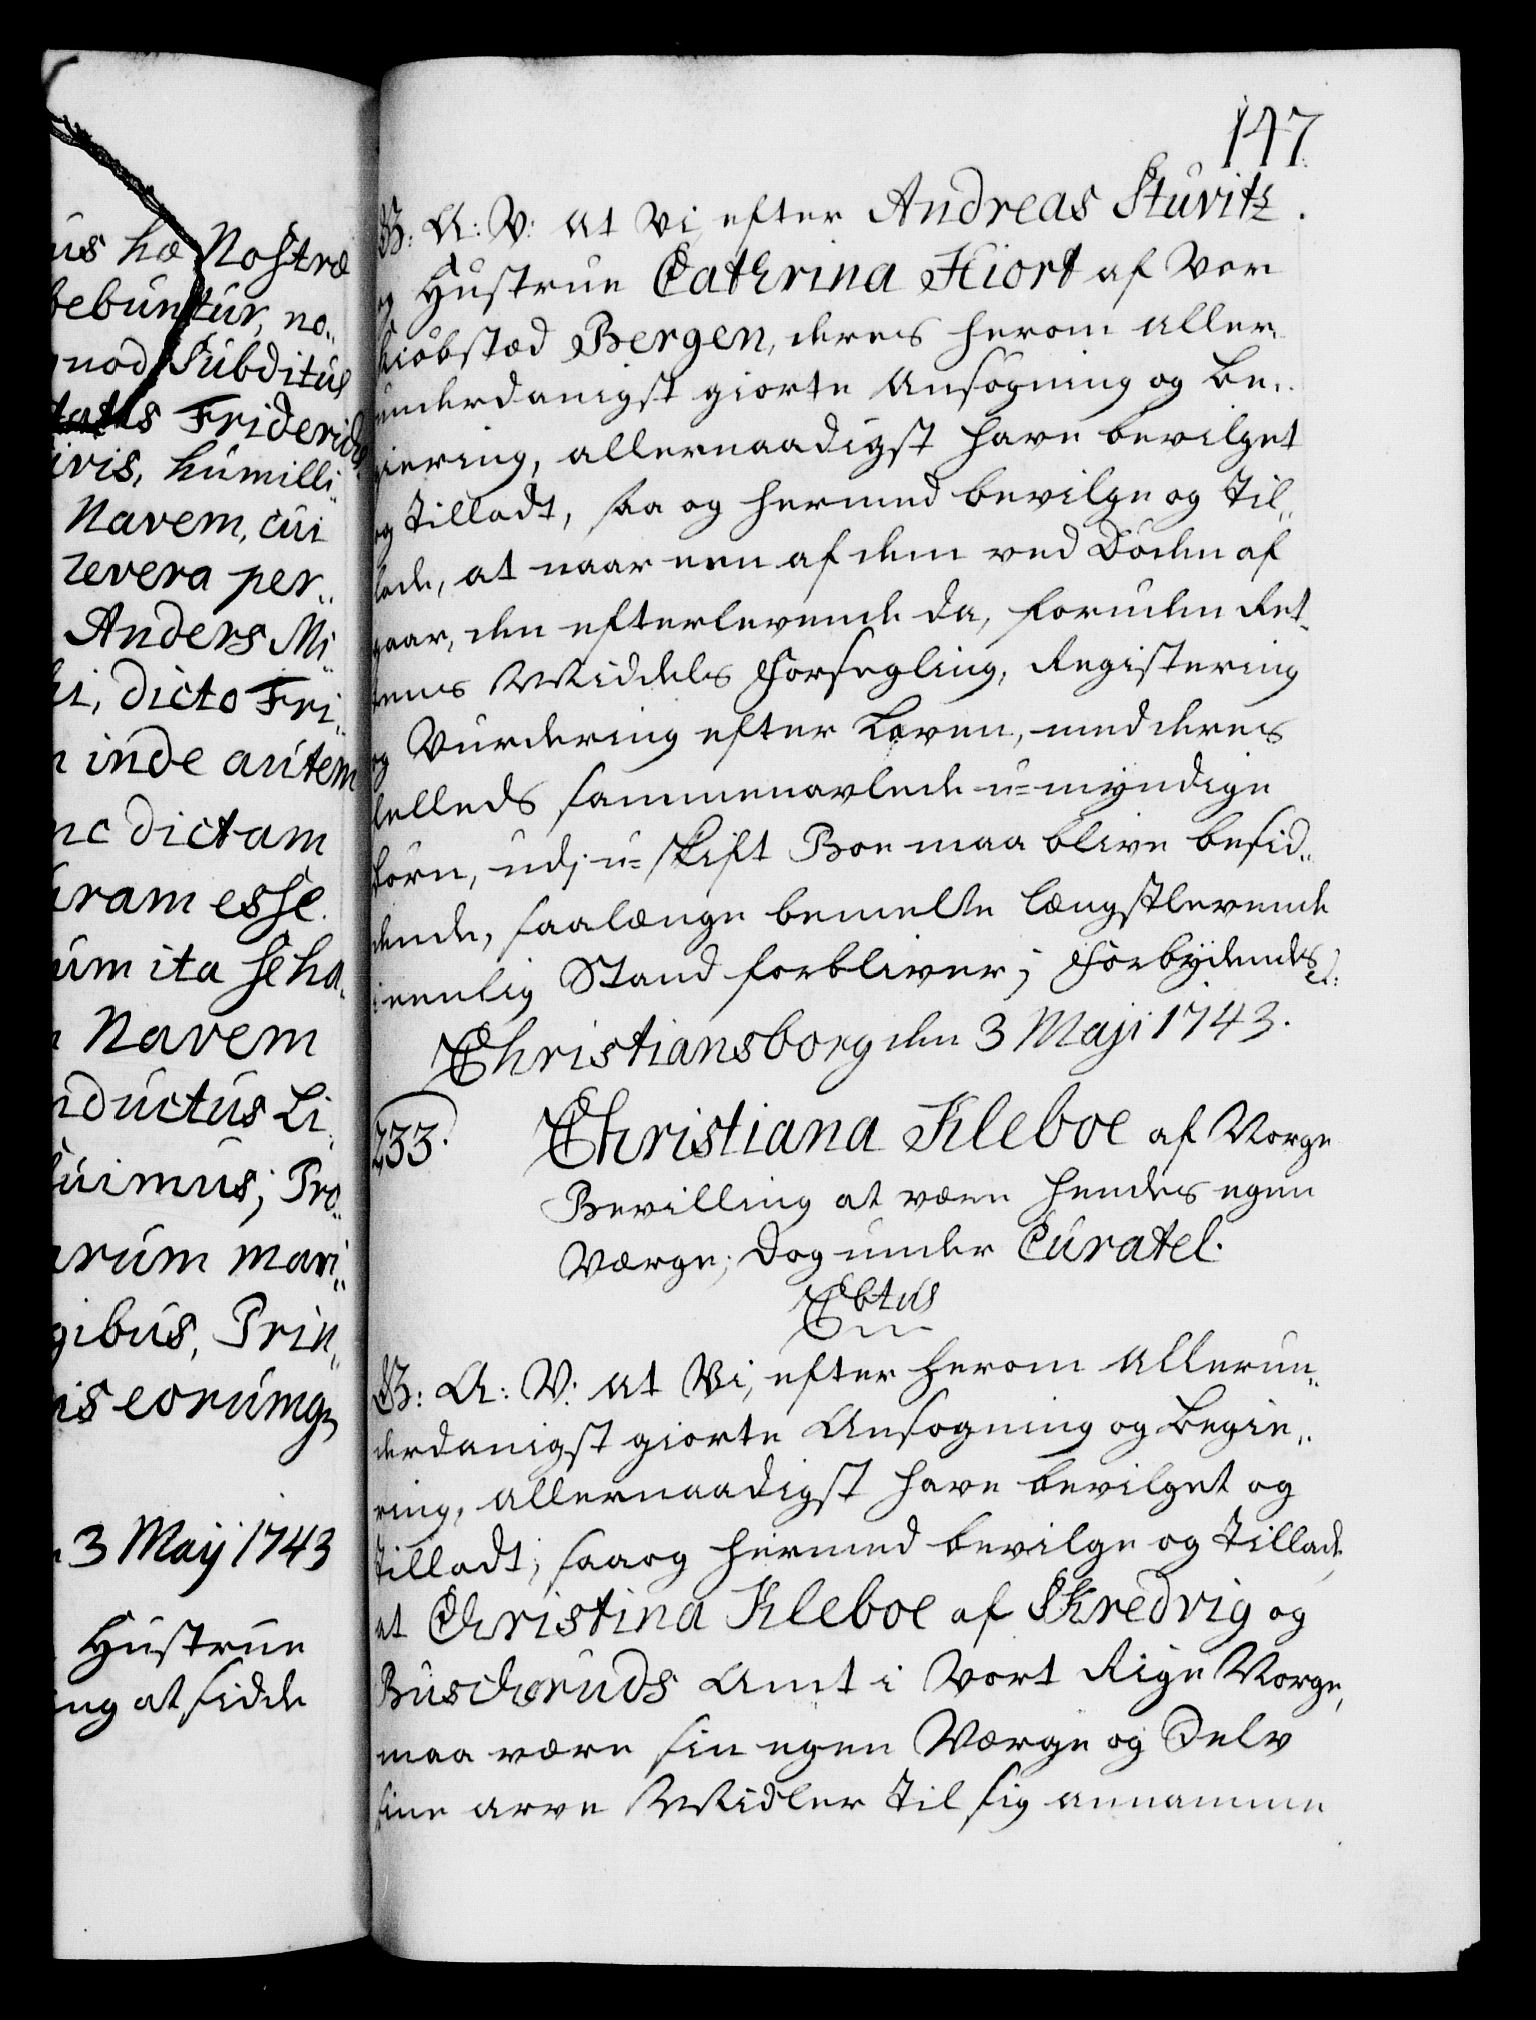 us hæ Nostræ
bebuntur, no„
quod Subditus
Friderichs
ivis, humilli„
Navem, cui
revera per„
Anders Mi„
hi, dicto Fri„
inde autem
nc dictam
uram esse.
um ita se ha„
Navem
nductus Li„
uimus; Pro„
arum mari„
gibus, Prin„
is eorumq3
3 Maij 1743
Hustrue
ing at sidde
147
G: A: V: At Vi, efter Andreas Stuvitz
og Hustrue Cathrina Hiort af Vor
Kiöbstæd Bergen, deres herom aller„
underdanigst giorte Ansögning og Be„
giering, allernaadigst have bevilget
og tilladt, saa og hermed bevilge og til„
lade, at naar een af dem ved Döden af
gaar, den efterlevende da, foruden Ret„
tens Middels Forsegling, Registering
og Vurdering efter Loven, med deres
felleds sammenavlede u=myndige
Börn, udj u=skift Boe maa blive besid„
dende, saalænge bemelte længstlevende
i eenlig Stand forbliver; Forbydendes etc:
Christiansborg den 3 Maji 1743.
233.
Christiana Kleboe af Norge
Bevilling at være hendes egen
Værge, dog under Curatel.
Cbtus
G: A: V: At Vi, efter herom Allerun„
derdanigst giorte Ansögning og Begie„
ring, allernaadigst have bevilget og
tilladt, saa og hermed bevilge og tillade,
at Christina Kleboe af Skredvig og
Buscheruds Amt i Vort Rige Norge,
maa være sin egen Værge og Selv
sine arve Midler til sig annamme